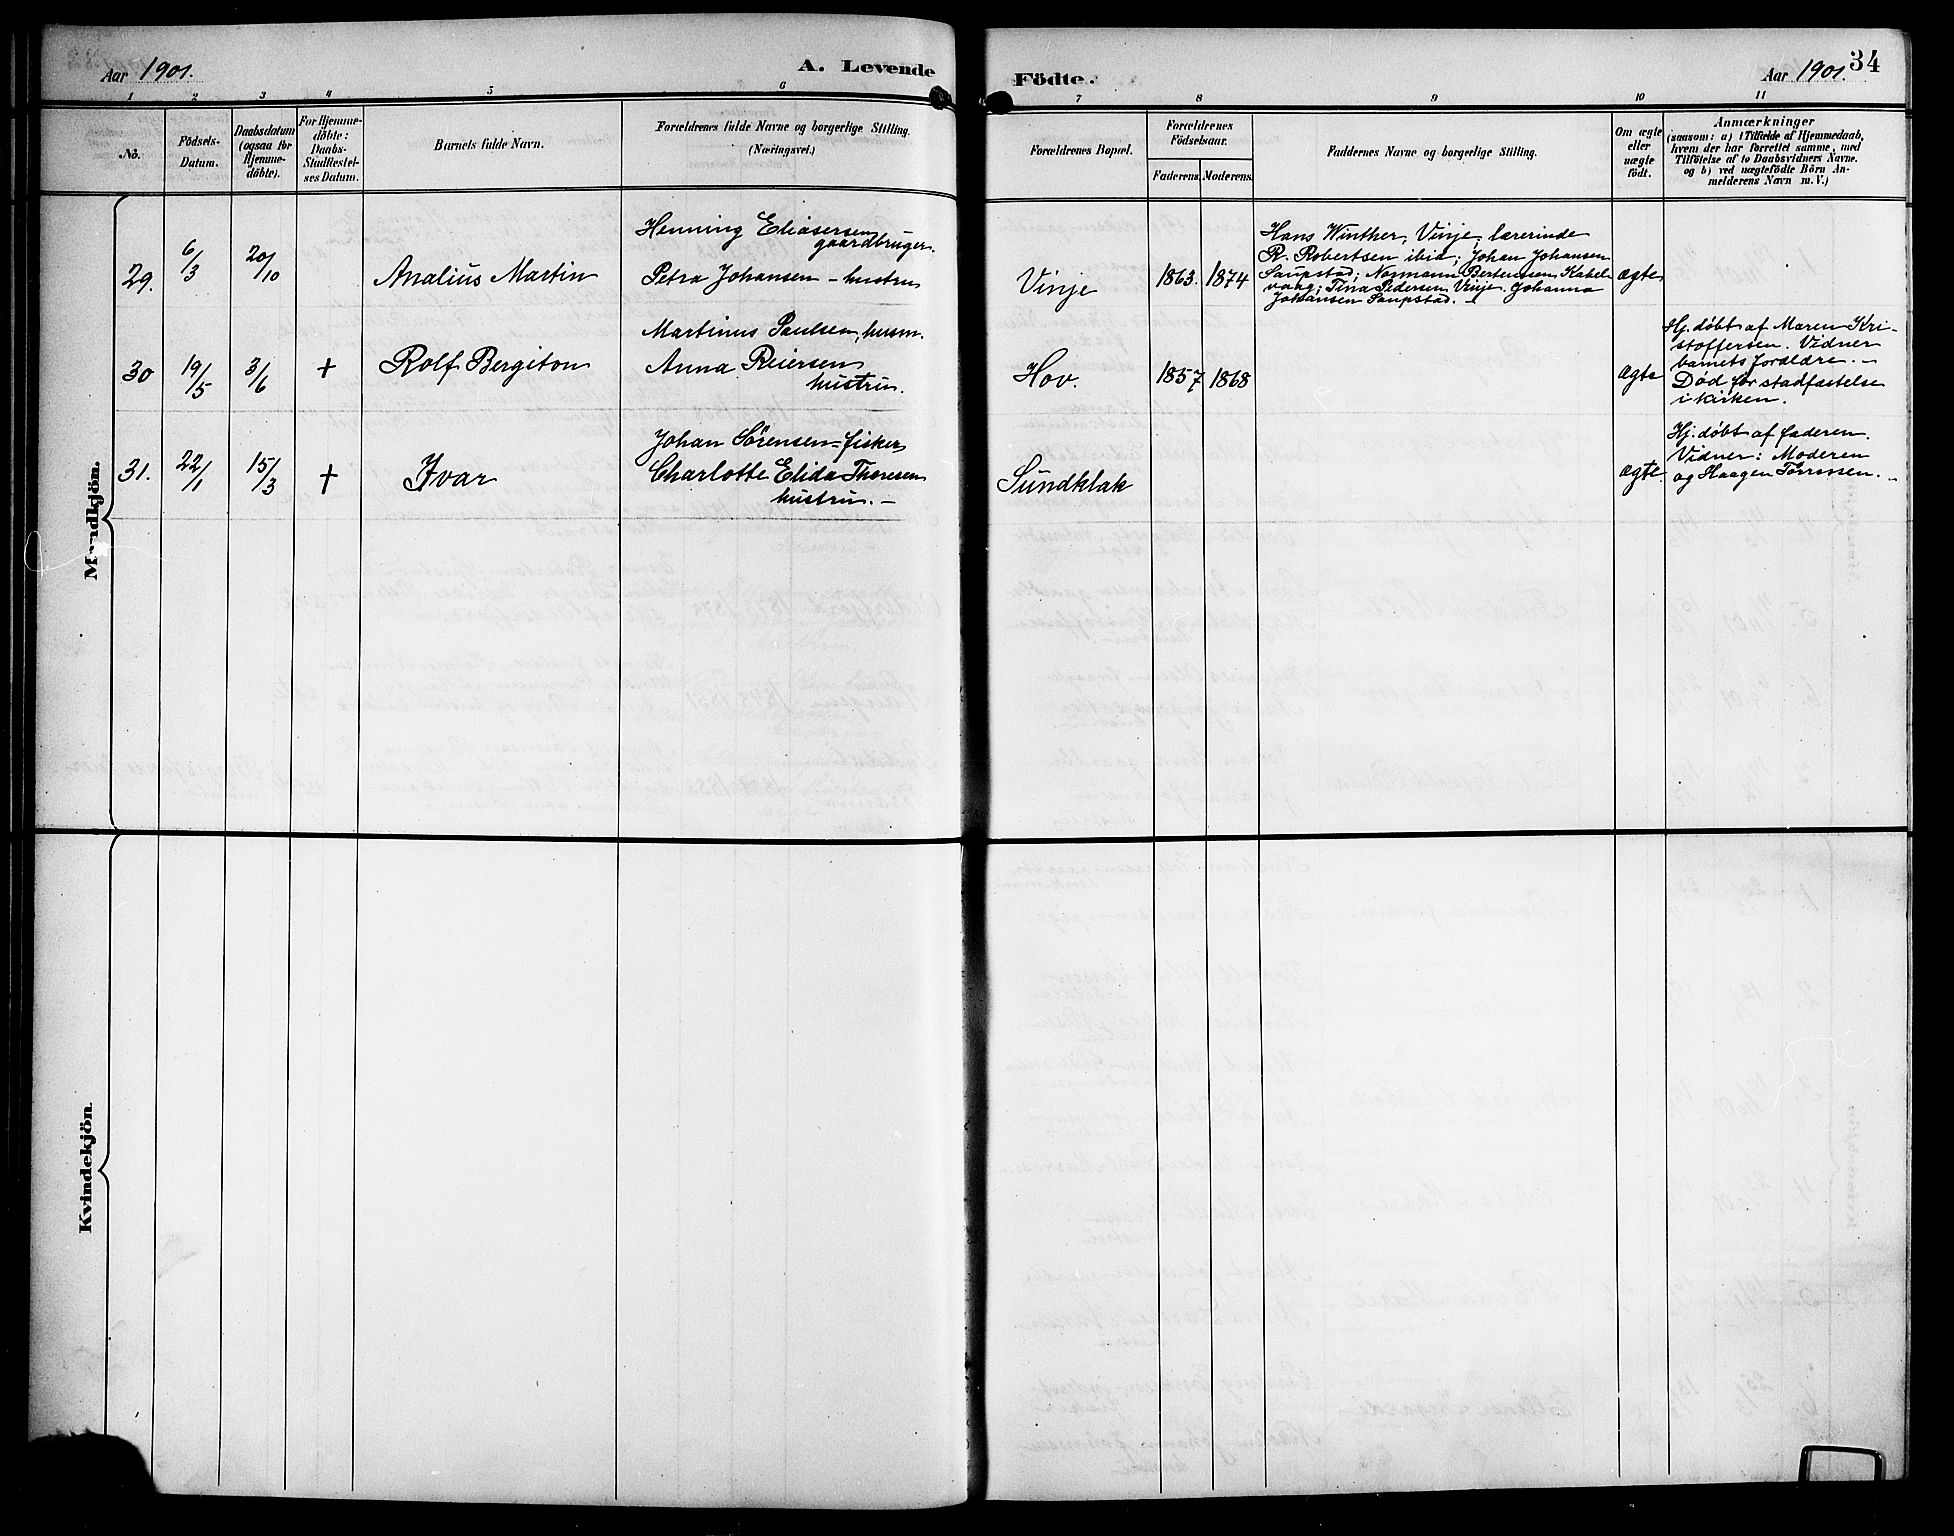 Aar 1901.
A. Levende
Födte.
Aar 1901.
34
1 2 3 4 5 6 7 8 9 10 11
No.
Födsels-
Datum.
Daabsdatum
(ogsaa for
Hjemme-
döbte).
For Hjemme-
døbte:
Daabs-
Stadfæstel-
ses Datum.
Barnets fulde Navn.
Forældrenes fulde Navne og borgerlige Stilling.
(Næringsvei.)
Forældrenes Bopæl.
Forældrenes
Födselsaar.
Faderens. Moderens.
Faddernes Navne og borgerlige Stilling.
Om ægte
eller
uægte
født.
Anmærkninger
(saasom: a) i Tilfælde af Hjemmedaab,
hvem der har forrettet samme, med
Tilföielse af to Daabsvidners Navne.
og b) ved uægtefödte Börn An-
melderens Navn m. V.)
Mandkjön.
29.
6/3
20/10
Analius Martin
Henning Eliasersen
gaardbruger.
Petra Johansen - hustru
Vinje
1863. 1874
Hans Winther, Vinje, lærerinde
R. Robertsen ibid; Johan Johansen
Saupstad; Normann Berteussen Kabel-
vaag; Tina Pedersen Vinje. Johanna
Johansen Saupstad. -
ægte
30
19/5
3/6
+
Rolf Bergiton
Martinus Paulsen, husm.
Anna Reiersen
hustru.
Hov.
1857 1868
ægte
Hj. døbt af Maren Kri-
stoffersen. Vidner
barnets forældre. -
Død før stadfæstelse
i kirken.
31.
22/1
15/3
+
Ivar
Johan Sørensen - fisker
Charlotte Elida Thoresen
hustru. -
Sundklak
ægte.
Hj. døbt af faderen.
Vidner: Moderen
og Haagen Tørrssen. -
Kvindekjön.